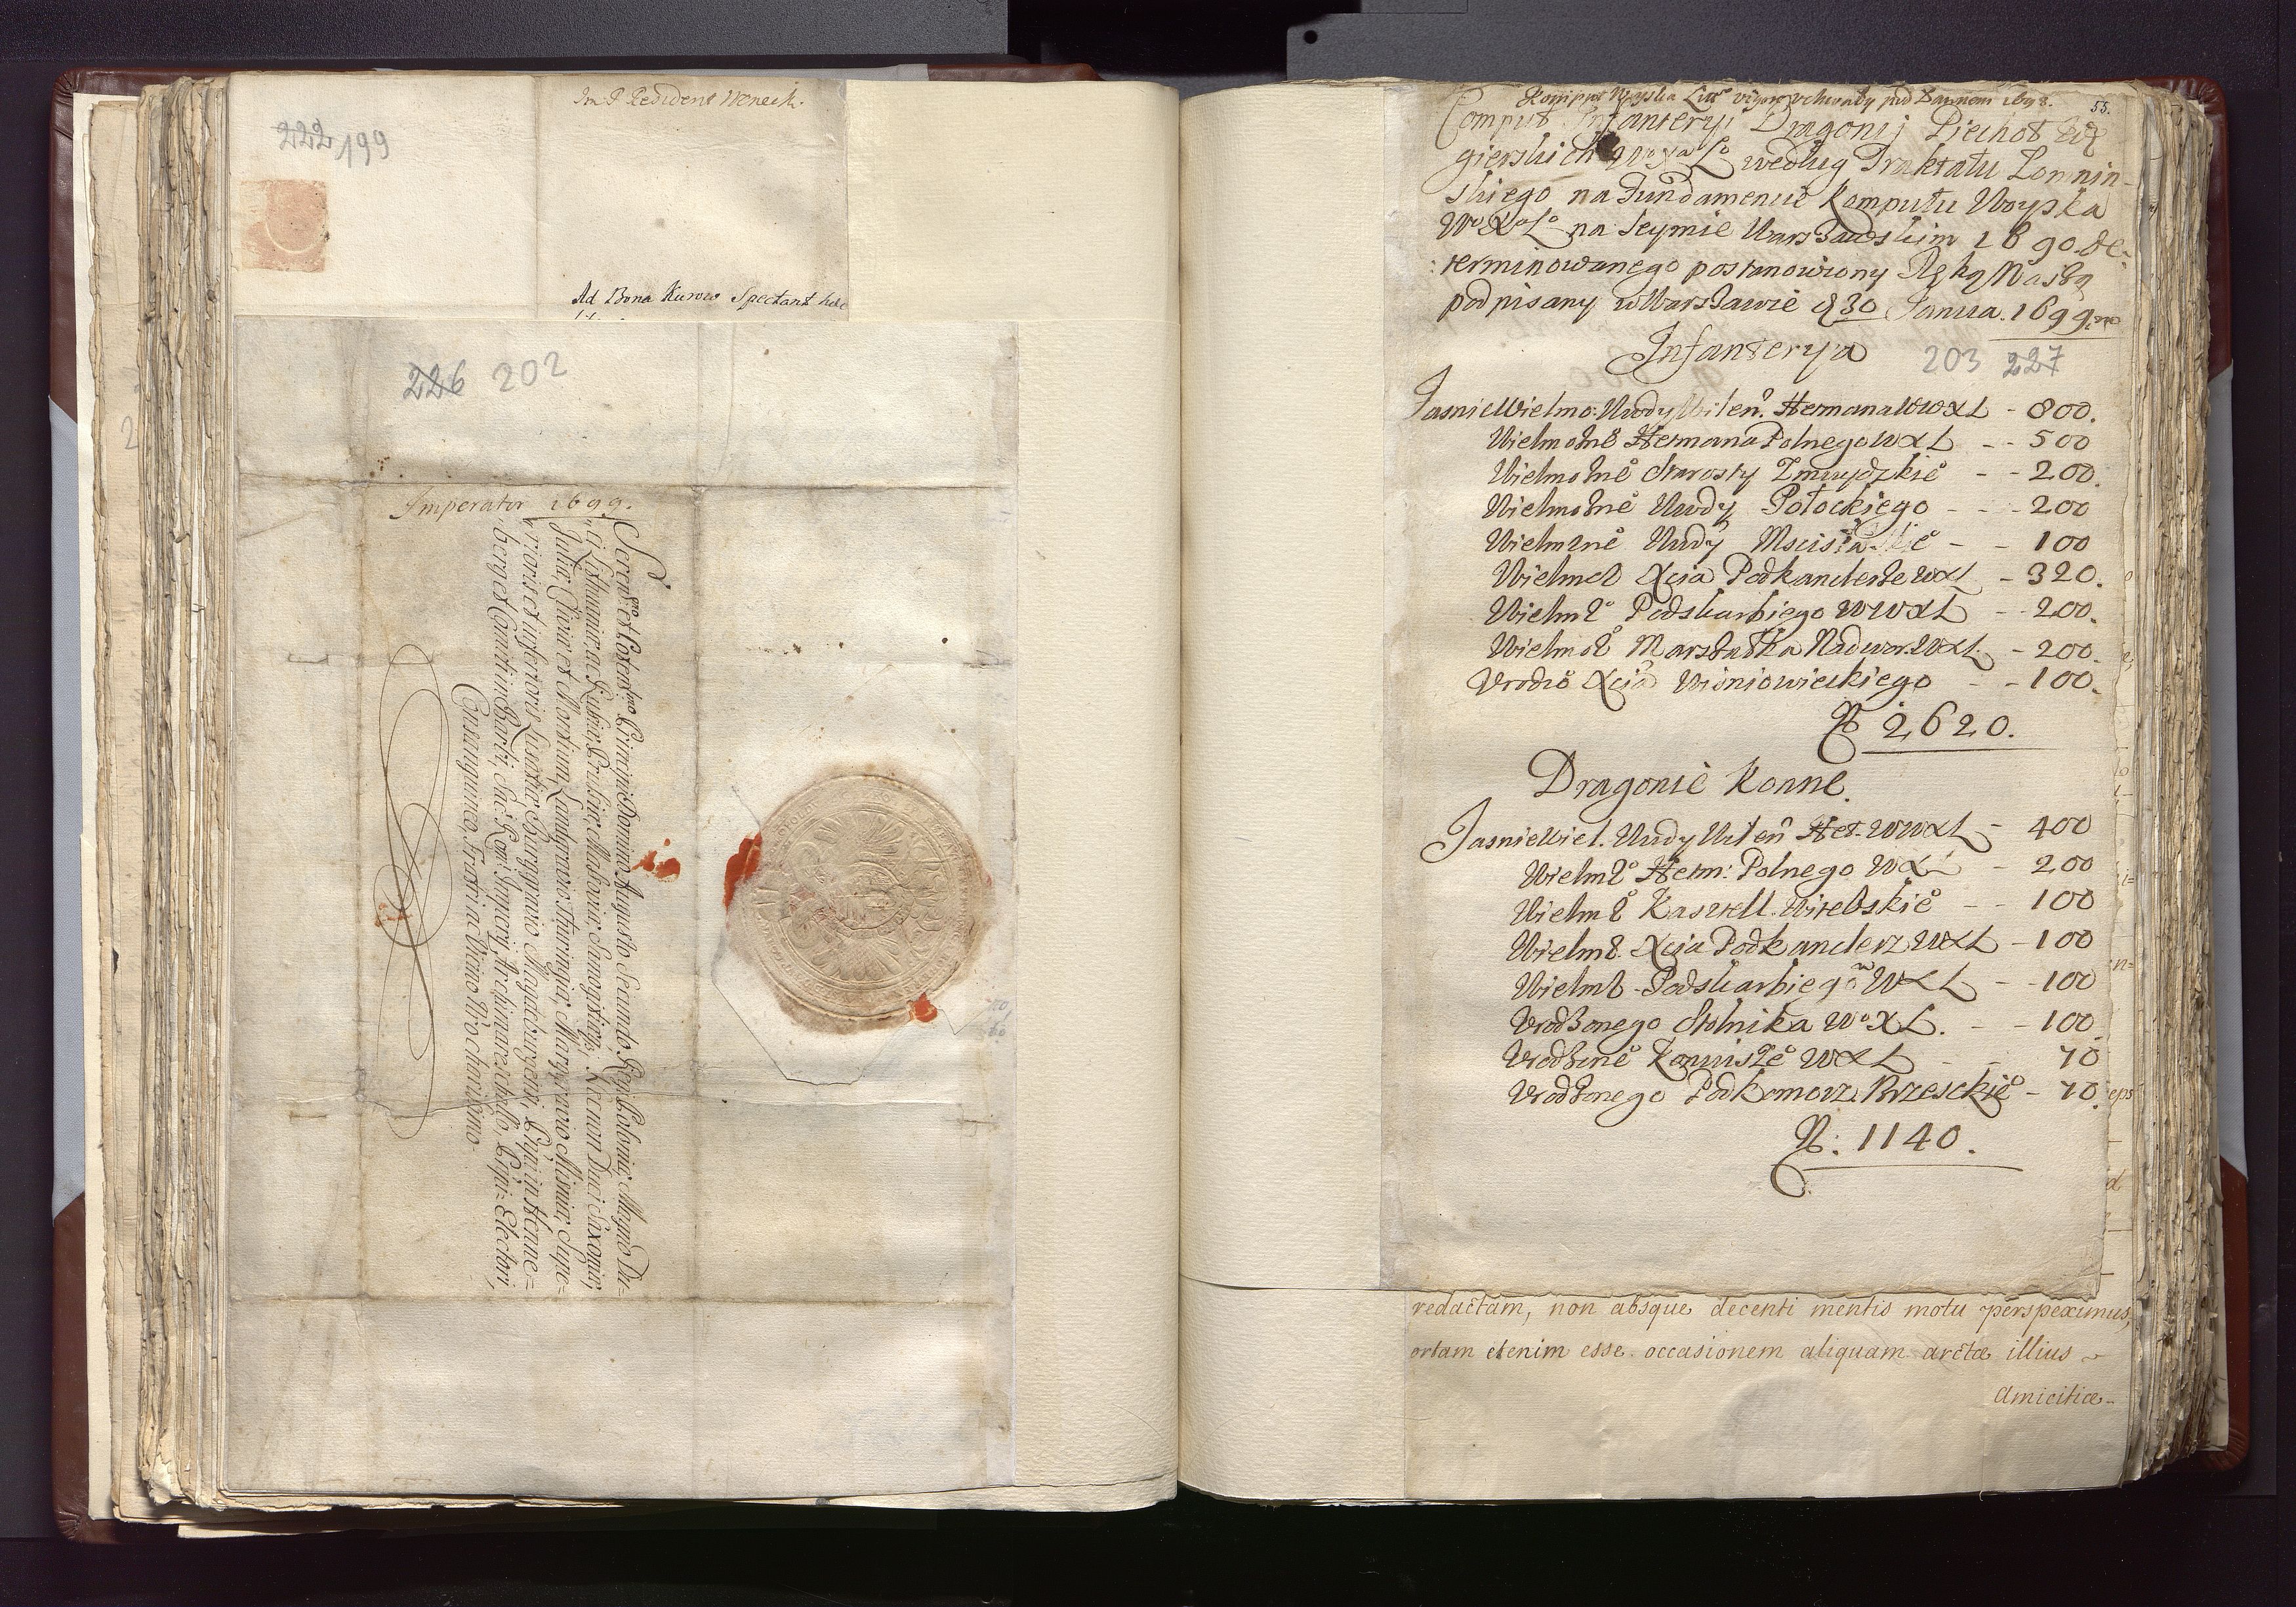 222 199
Im P Resident Wenecki.
Ad Bona Kurow Spectant
226 202
Imperator 1699.
Serenmo et Potentmo Principi Domino Augusto Secundo, Regi Poloniæ, Magno Du=
ci Lithuaniæ, ac Russiæ, Prussiæ, Masoviæ, Samogitiæq;, Necnon Duci Saxoniæ,
Juliæ, Cliviæ et Montium, Landgravio Thuringiæ, Marggravio Misniæ, Supe=
rioris et inferioris Lusatiæ, Burggravio Magdeburgensi, Ppi in Henne=
berg et Comiti in Barbi, Sac: Rom: Impery Archimareschallo, Ppi: Electori,
Consanguineo, Fratri ac Vicino Nro charissimo.
55.
Komput Woyska Litt vchwały pod 1698.
Comput Infanteryi Dragonij Piechot Wę
gierskich W° Xa L° według Traktatu
skiego na Fundamencie Komputu Woyska
W° X° L° na Seymie Warszawskim 1690 de-
terminowanego postanowiony Ręką Naszą
podpisany w Warszawie d 30 Janua. 1699.
Infanterya 203 227
Jasnie Wielmo: Wwdy Wilen. Hetmana WWXL - 800.
Wielmożne Hetmana Polnego WXL - - 500
Wielmożne Starosty Zmuydzkie - - 200.
Wielmożne Wwdy Połockiego - - - 200
Wielmżne Wwdy - - 100
Wielmoż Xcia Podkanclerze WXL - 320.
Wielmż° Podskarbiego WWXL - - 200.
Wielmoż° Marszałka Nadwor. WXL. - 200.
Vrodzo Xcia Wisniowieckiego - - 100.
N° 2620.
Dragonie Konne.
Jasnie Wiel. Wwdy Wilen Het. WWXL - 400
Wielmż° Hetm: Polnego WXL - 200
Wielmż° Kasztell. Witebskie° - - 100
Wielmż. Xcia Podkanclerz WXL - 100
Wielmż Podskarbiego WXL - - 100
Vrodzonego Stolnika W° XL. - - 100
Vrodzone° Koniusze° WXL - - 70
Vrodzonego Podkomorz. Brzeskie° - 70.
N: 1140.
redactam, non absque decenti mentis motu perspeximus,
ortam etenim esse occasionem aliquam arctæ illius
amicitiæ